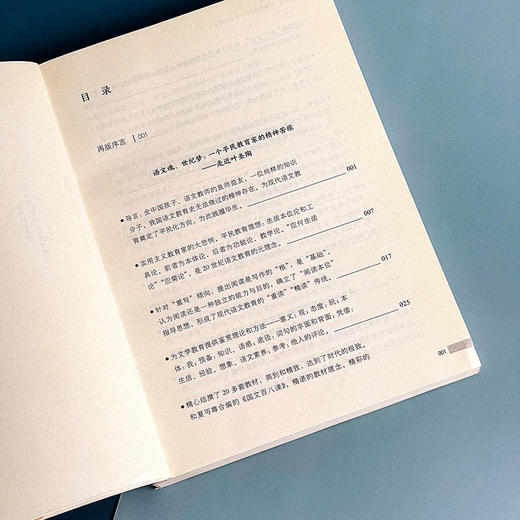 目 录
再版序言 | 001
语文魂、世纪梦：一个平民教育家的精神苦旅
——走近叶圣陶
● 导言：全中国孩子、语文教师的良师益友，一位纯粹的知识
分子，我国语文教育史无法绕过的精神存在，为现代语文教
育奠定了平民化方向，为此践履毕生。 001
● 实用主义教育家的大悲悯，平民教育理想：生活本位论和工
具论。前者为本体论，后者为功能论、教学论。“应付生活
论”“应需论”，是 20 世纪语文教育的元理念。 007
● 针对“重写”倾向，提出阅读是写作的“根”，是“基础”，
认为阅读还是一种独立的能力与目的，确立了“阅读本位”
指导思想，形成了现代语文教育的“重读”“精读”传统。 017
● 为文学教育提供鉴赏理论和方法——意义：观，态度：玩，本
体：我，预备：知识、语感；途径：词句的平面和背面；凭借：
生活、经验、想象、语文素养；参考：他人的评论。 025
● 精心结撰了 20 多套教材，周到和精致，达到了时代的极致。
和夏丏尊合编的《国文百八课》，精湛的教材理念，精彩的
001